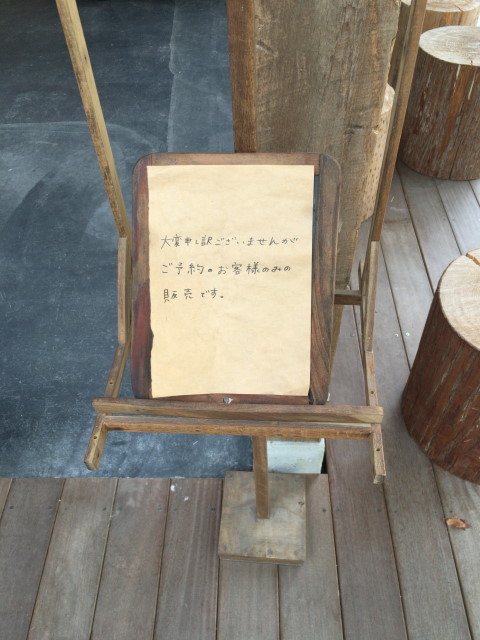 大変申し訳ございませんが
ご予約のお客様のみの
販売です。